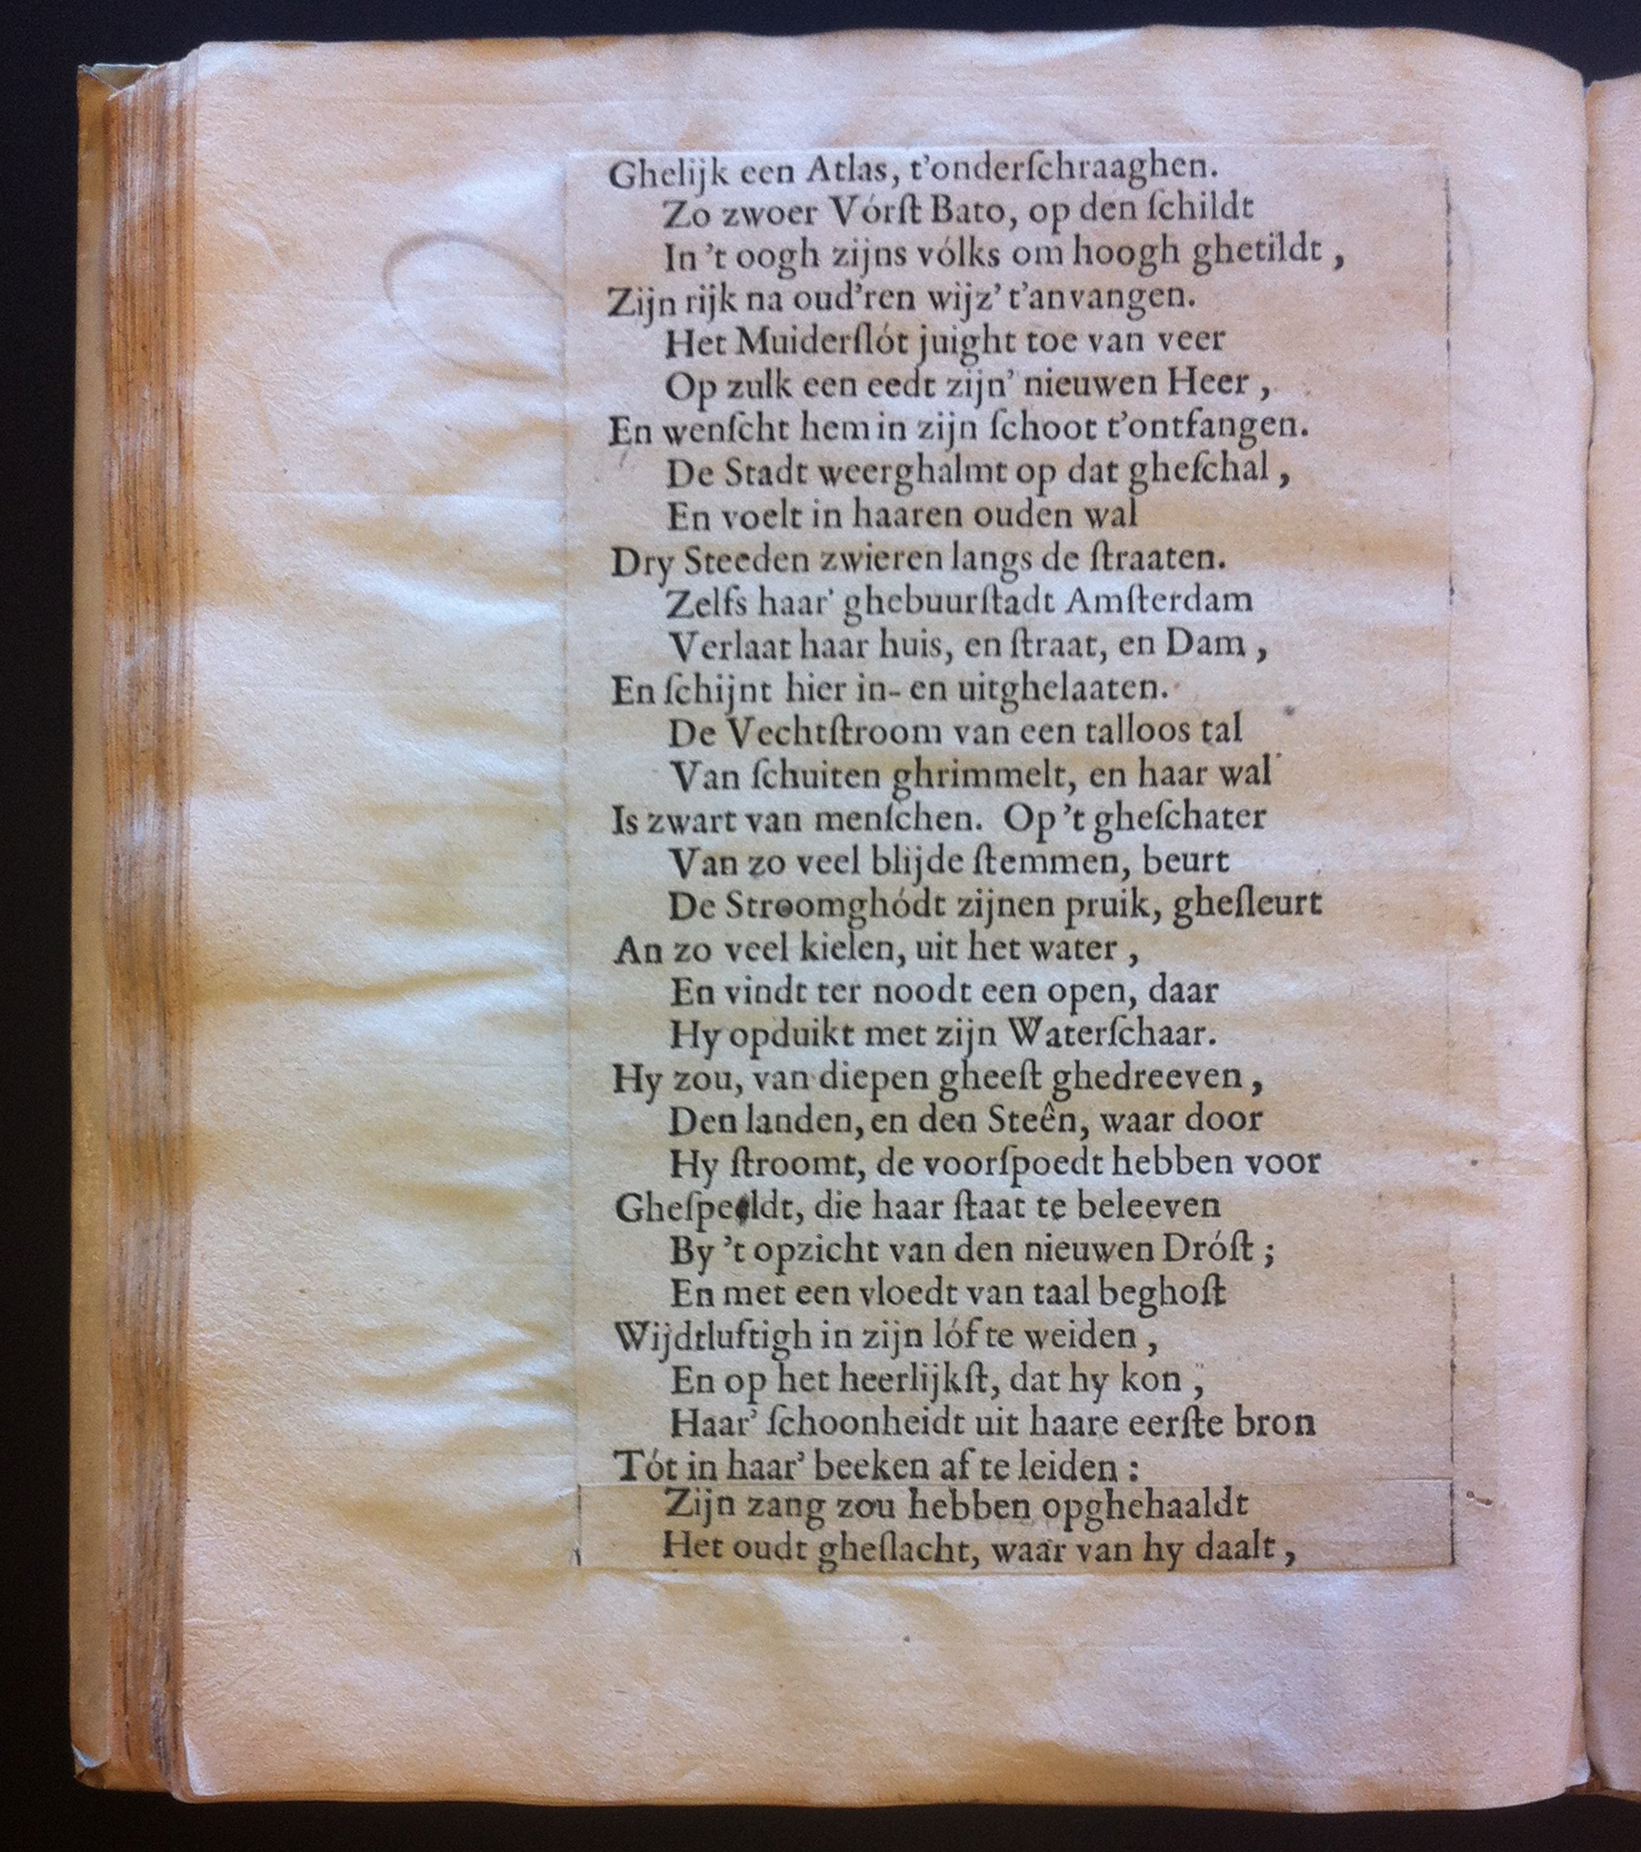 Ghelijk een Atlas, t'onderſchraaghen.
Zo zwoer Vórſt Bato, op den ſchildt
In 't oogh zijns vólks om hoogh ghetildt,
Zijn rijk na oud'ren wijz' t'anvangen.
Het Muiderſlót juight toe van veer
Op zulk een eedt zijn' nieuwen Heer,
En wenſcht hem in zijn ſchoot t'ontfangen.
De Stadt weerghalmt op dat gheſchal,
En voelt in haaren ouden wal
Dry Steeden zwieren langs de ſtraaten.
Zelfs haar' ghebuurſtadt Amſterdam
Verlaat haar huis, en ſtraat, en Dam,
En ſchijnt hier in- en uitghelaaten.
De Vechtſtroom van een talloos tal
Van ſchuiten ghrimmelt, en haar wal
Is zwart van menſchen. Op 't gheſchater
Van zo veel blijde ſtemmen, beurt
De Stroomghódt zijnen pruik, gheſleurt
An zo veel kielen, uit het water,
En vindt ter noodt een open, daar
Hy opduikt met zijn Waterſchaar.
Hy zou, van diepen gheeſt ghedreeven,
Den landen, en den Steên, waar door
Hy ſtroomt, de voorſpoedt hebben voor
Gheſpeldt, die haar ſtaat te beleeven
By 't opzicht van den nieuwen Dróſt;
En met een vloedt van taal beghoſt
Wijdtluftigh in zijn lóf te weiden,
En op het heerlijkſt, dat hy kon,
Haar' ſchoonheidt uit haare eerſte bron
Tót in haar' beeken af te leiden:
Zijn zang zou hebben opghehaaldt
Het oudt gheſlacht, waar van hy daalt,